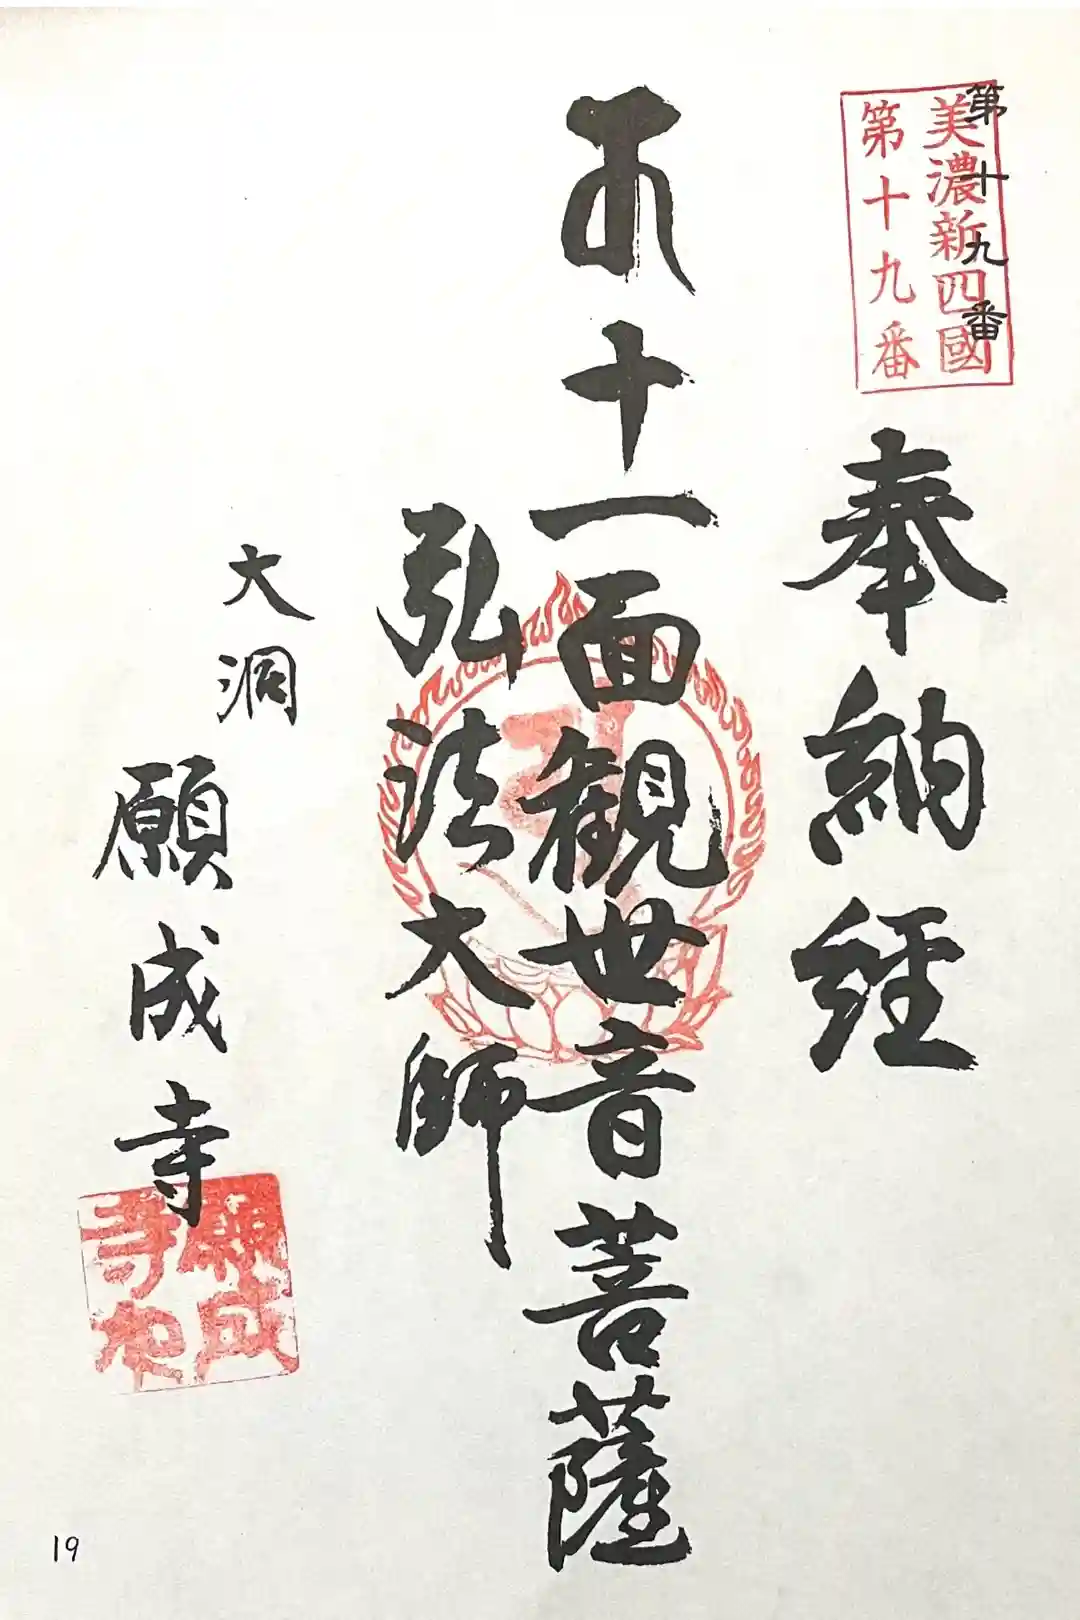 第十九番
美濃新四國
第十九番
奉納経
十一面観世音菩薩
弘法大師
大洞
願成寺
願成
寺印
19